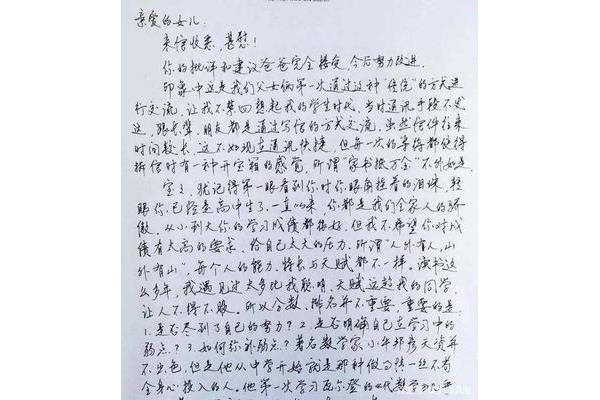 亲爱的女儿:
来信收悉,甚慰!
你的批评和建议爸爸完全接受,今后努力改进.
印象中这是我们父女俩第一次通过这种“传统”的方式进
行交流,让我不禁回想起我的学生时代,当时通讯手段不发
达,跟长辈、朋友都是通过写信的方式交流,虽然信件往来
时间较长,这不如现在通讯快捷,但每一次的等待都使得
拆信时有一种开宝箱的感觉,所谓“家书抵万金”不外如是.
宝宝,犹记得第一眼看到你时你眼角挂着的泪珠,转
眼你已经是高中生了.一直以来,你都是我们全家人的骄
傲.从小到大你的学习成绩都很好,但我不希望你对成
绩有太高的要求,给自己太大的压力.所谓“人外有人,山
外有山”,每个人的能力、特长与天赋都不一样,读书这
么多年,我遇见过太多比我聪明、天赋远超我的同学,
让人不得不服.所以分数、排名并不重要,重要的是:
1.是否尽到了自己的努力?2.是否明确自己在学习中的
弱点?3.如何弥补弱点?著名数学家小平邦彦天资并
不出色,但是他从中学开始就是那种做事情一丝不苟
全身心投入的人.他第一次学习瓦尔登的《代数学》